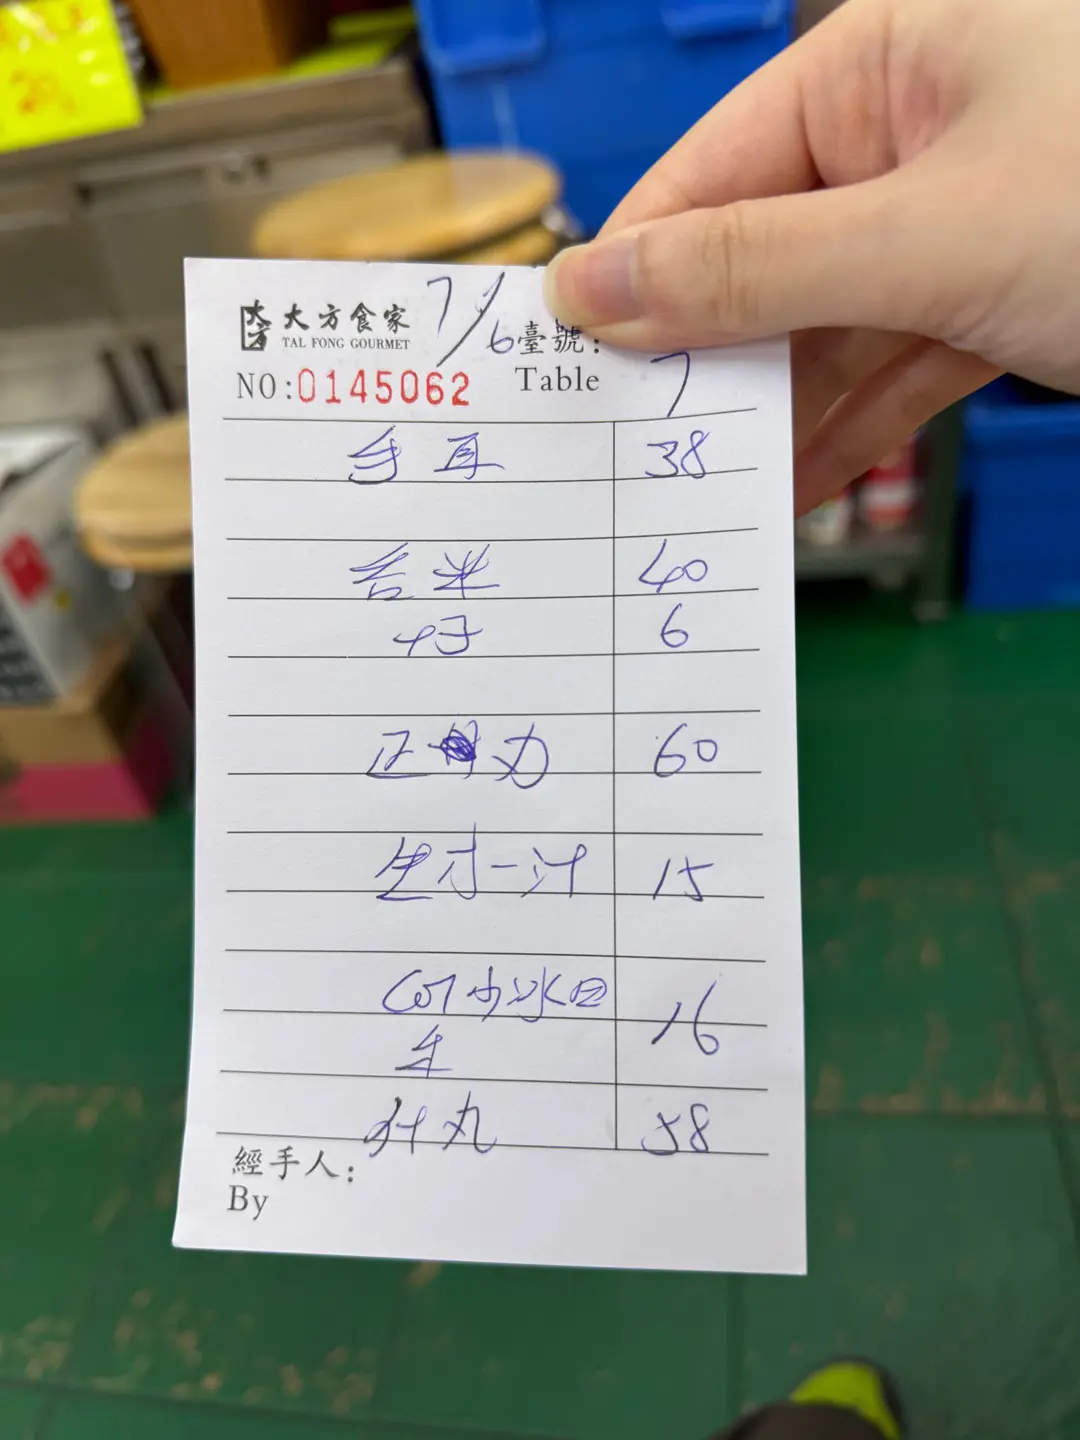 大方食家 7/6 臺號:
TAI FONG GOURMET
NO:0145062 Table 7
手耳 38
吉米 40
6
正 60
生才一汁 15
少冰 16
生
什丸 58
經手人:
By